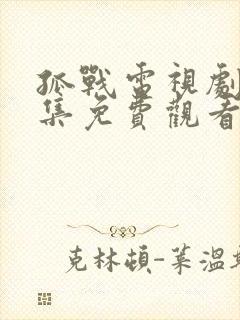 孤戰電視劇
集免費觀看
克林頓-萊溫